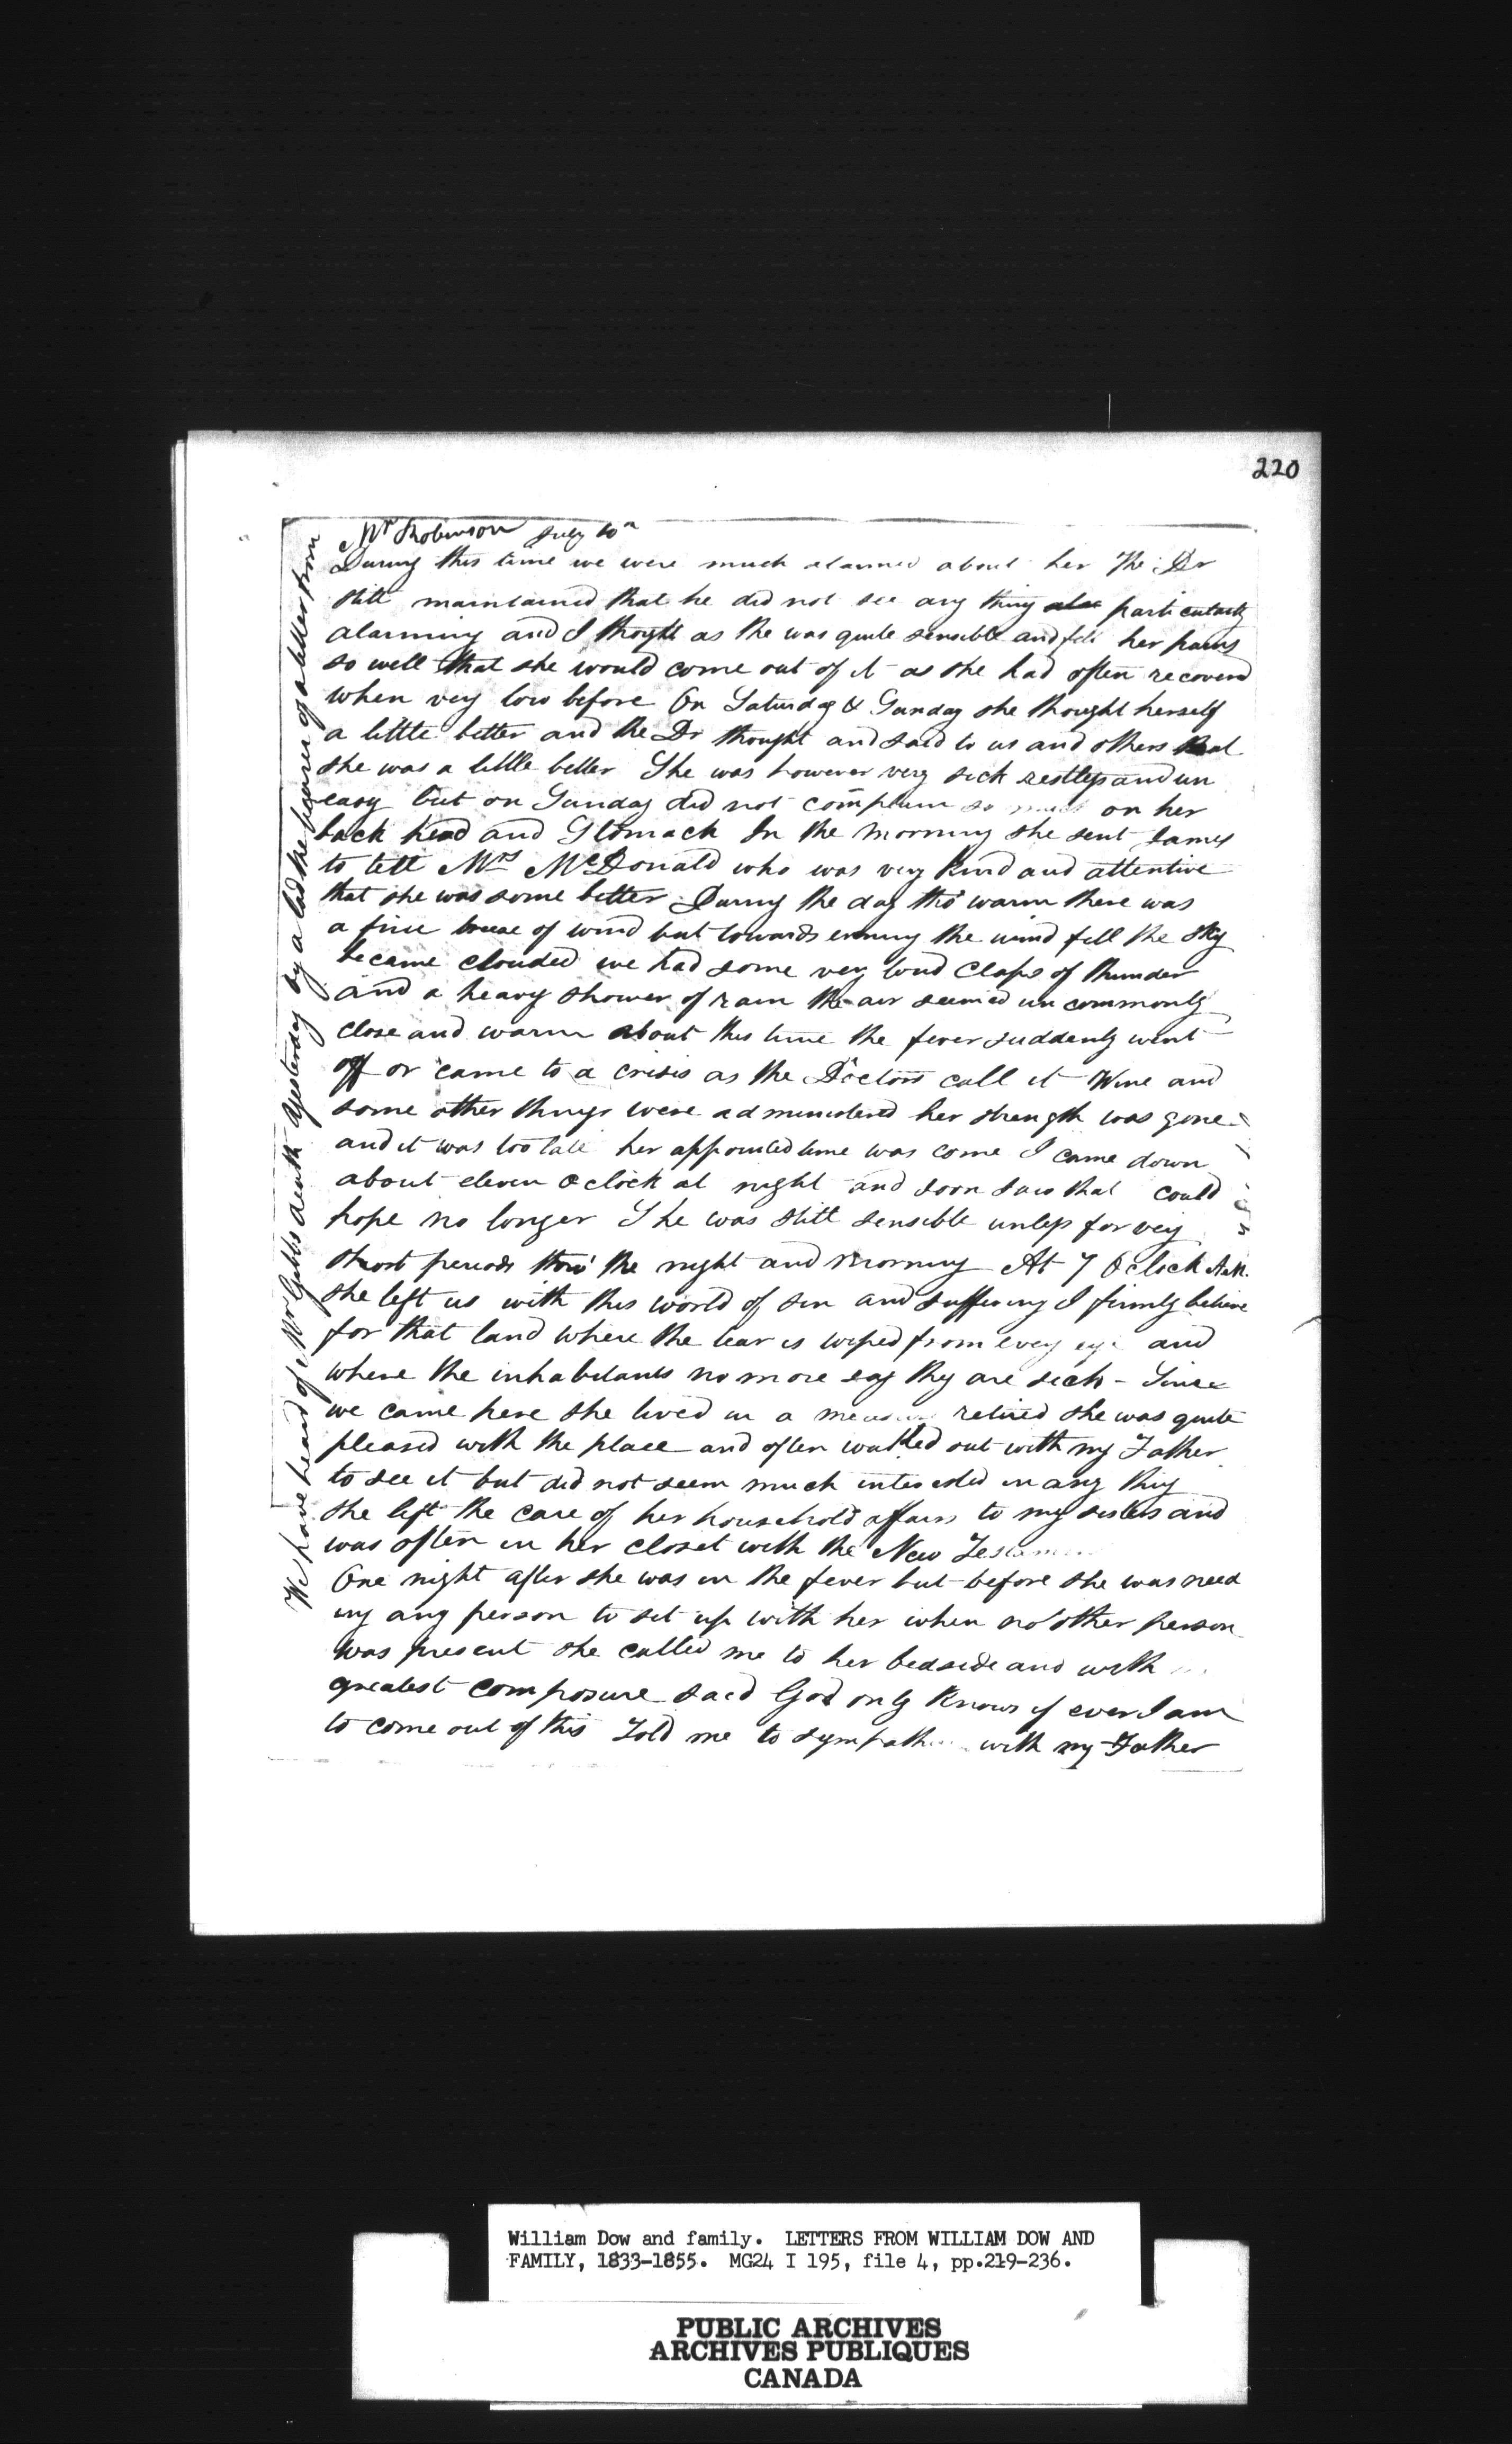 220
Mr Robinson July 10th
During this time we were much alarmed about her The Dr
still maintained that he did not see any thing particularly
alarming and I thought as she was quite sensible and felt her pains
so well that she would come out of it as she had often recovered
when very low before On Saturday & Sunday she thought herself
a little better and the Dr thought and said to us and others that
she was a little better She was however very sick restless and un
easy but on Sunday did not complain so much on her
back head and Stomack In the morning she sent James
to tell Mrs McDonald who was very kind and attentive
that she was some better During the day tho' warm there was
a fine breeze of wind but towards evening the wind fell the sky
became clouded we had some very loud claps of thunder
and a heavy shower of rain the air seemed uncommonly
close and warm about this time the fever suddenly went
off or came to a crisis as the Doctors call it Wine and
some other things were administered her strength was gone
and it was too late her appointed time was come I came down
about eleven oclock at night and soon saw that could
hope no longer She was still sensible unless for very
short periods thro' the night and morning At 7 Oclock A.M.
she left us with this world of sin and suffering I firmly believe
for that land where the tear is wiped from every eye and
where the inhabitants no more say they are sick - Since
we came here she lived in a measure retired she was quite
pleased with the place and often walked out with my Father
to see it but did not seem much interested in any thing
she left the care of her household affairs to my sisters and
was often in her closet with the New Testament
One night after she was in the fever but before she was need
ing any person to sit up with her when no other person
was present she called me to her bedside and with
greatest composure said God only knows if ever I am
to come out of this Told me to sympathise with my Father
We have heard of Mr Gibbs death yesterday by a lad the bearer of a letter from
William Dow and family. LETTERS FROM WILLIAM DOW AND
FAMILY, 1833-1855. MG24 I 195, file 4, pp.219-236.
PUBLIC ARCHIVES
ARCHIVES PUBLIQUES
CANADA